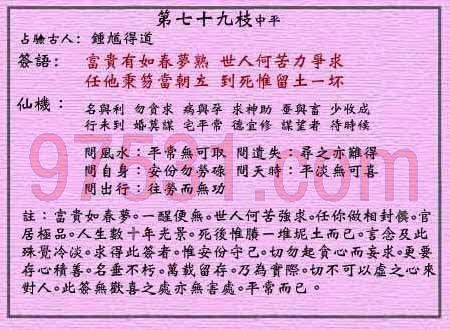 第七十九枝中平
占驗古人：鍾馗得道
簽語：富貴有如春夢熟 世人何苦力爭求
任他秉笏當朝左 到死惟留土一坏
仙機：
名與利 勿貪求 病與孕 求神助 蚕與畜 少收成
行未到 婚莫謀 宅平常 德宜修 謀望者 待時候
問風水：平常無可取 問遺失：尋之亦難得
問自身：安份勿勞碌 問天時：平淡無可喜
問出行：往勞而無功
註：富貴如春夢。一醒便無。世人何苦強求。任你做相封侯。官
居極品。人生數十年光景。死後惟賸一堆坭土而已。言念及此
殊覺冷淡。求得此簽者。惟安份守己。切勿起貪心而妄求。更要
存心積善。名垂不朽。萬載留存。乃為實際。切不可以虛之心來
對人。此簽無歡喜之處亦無害處。平常而已。
97531.com